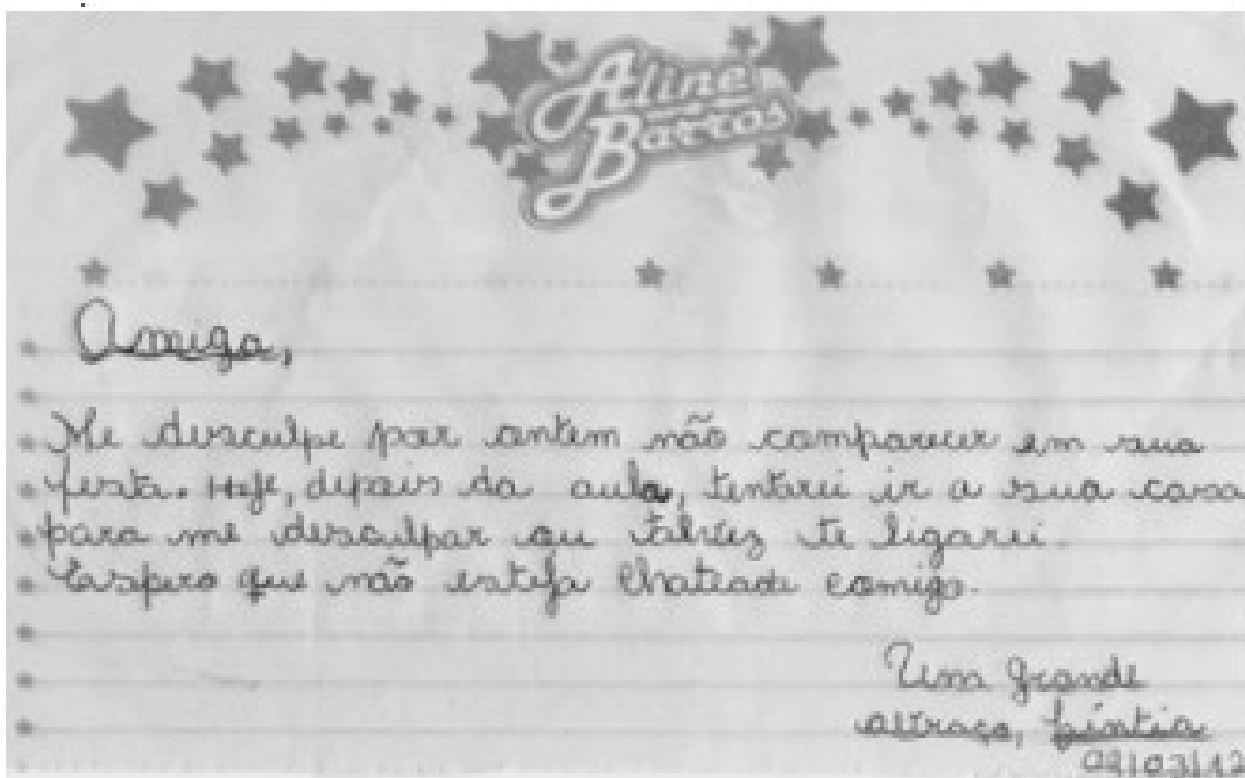 Aline
Barros
Amiga,
Me desculpe por ontem não comparecer em sua
festa. Hoje, depois da aula, tentarei ir a sua casa
para me desculpar ou talvez te ligarei.
Espero que não esteja chateada comigo.
Um grande
abraço, Cíntia
02/03/12